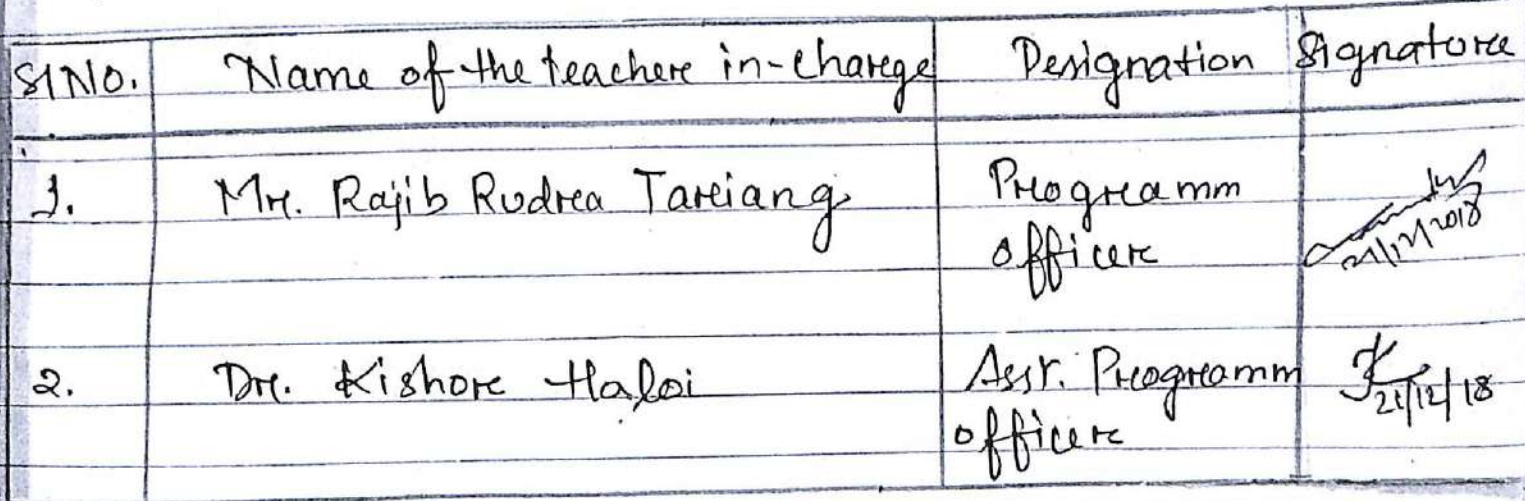 Sl No. Name of the teacher in-charge Designation Signature
1. Mr. Rajib Rudra Tariang Programm
officer
21/12/2018
2. Dr. Kishore Haloi Asst. Programm
officer
21/12/18